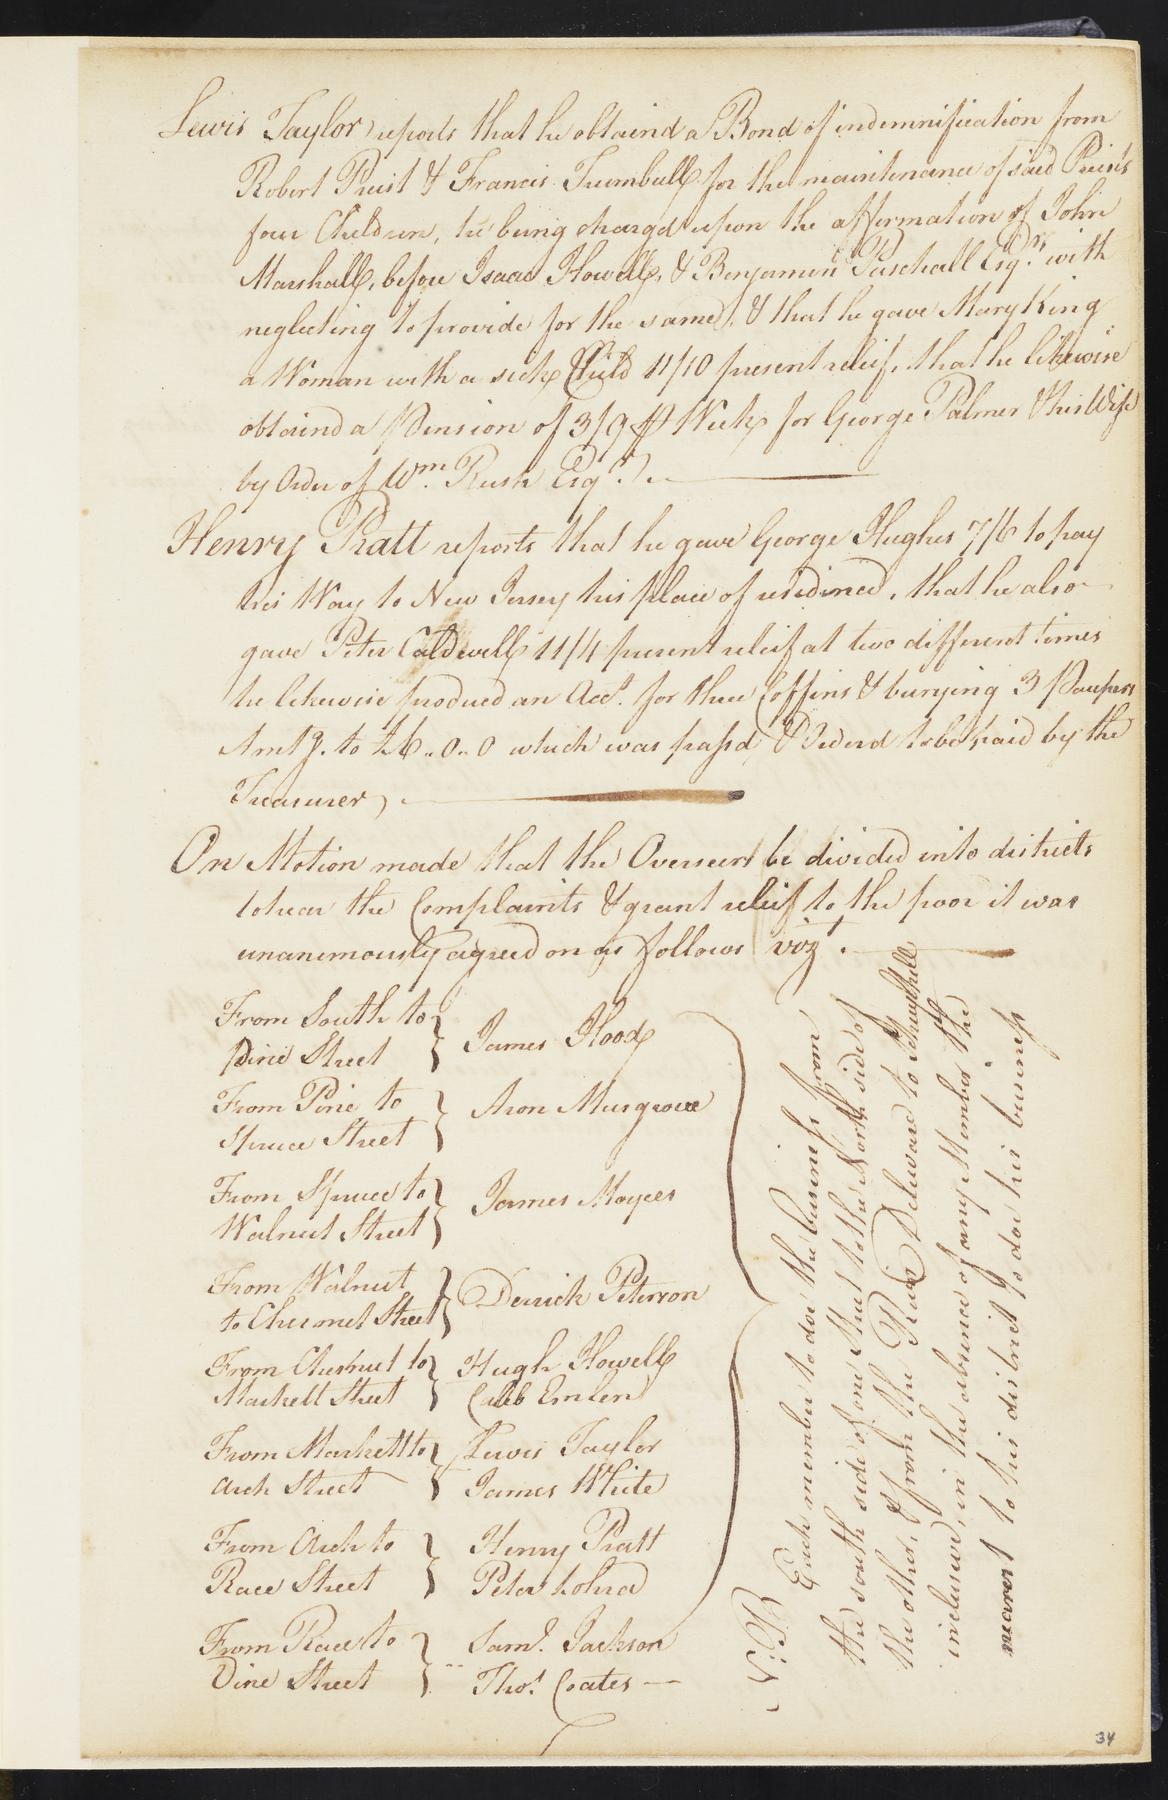 Lewis Taylor reports that he obtaind a Bond of indemnification from
Robert Priest & Francis Trumball for the maintenance of said Priests
four Children, he being charged upon the affirmation of John
Marshall, before Isaac Howell, & Benjamin Paschall Esqrs. with
neglecting to provide for the same, & that he gave Mary King
a Woman with a sick Child 11/10 present relief, that he likewise
obtaind a Pension of 3/9 ⅌ Week for George Palmer & his Wife
by Order of Wm. Rush Esqr.
Henry Pratt reports that he gave George Hughes 7/6 to pay
his Way to New Jersey his place of residince, that he also
gave Peter Caldwell 11/4 present releif at two different times
he likewise produced an Acct. for three Coffins & burying 3 Paupers
Amtg. to £6..0..0 which was passd, & Orderd to be paid by the
Treasurer,
On Motion made that the Overseers be divided into districts
to hear the Complaints & grant relief to the poor it was
unanimously agreed on as follows vizt.
From South to
Pine Street } James Hood
From Pine to
Spruce Street } Aron Musgrove
From Spruce to
Walnut Street } James Moyes
From Walnut
to Chesnut Street } Derrick Peterson
From Chesnut to } Hugh Howell
Markett Street Caleb Emlen
From Markett to } Lewis Taylor
Arch Street James White
From Arch to } Henry Pratt
Race Street Peter
From Race to } Saml. Jackson
Vine Street Thos. Coates
N.B. Each member to doe the business from
the south side of one Street to the North side of
the other, & from the River Delaward to Schuylkill
inclusive, in the absence of any Member the
nearest to his district to doe his business
34